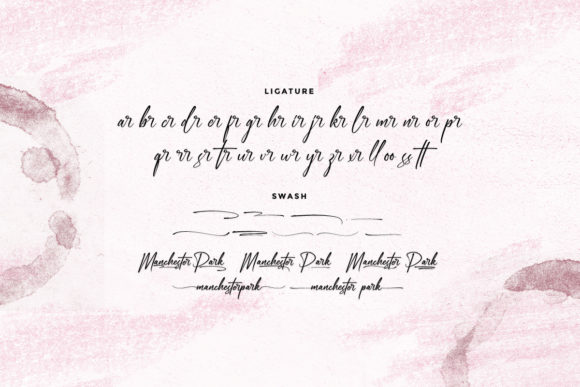 LIGATURE
ar br cr dr er fr gr hr ir jr kr lr mr nr or pr
qr rr sr tr ur vr wr yr zr xr ll oo ss tt
SWASH
Manchester Park Manchester Park Manchester Park
manchesterpark manchester park